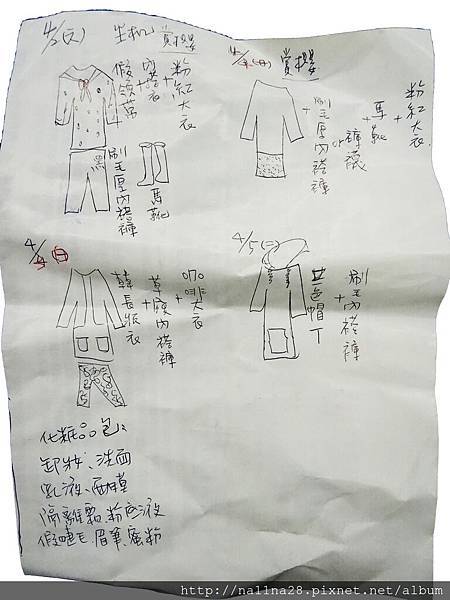 4/2(六)
坐机 賞櫻
粉紅大衣
+
內搭衣
+
假領萬
+
黑
刷毛厚內搭褲
馬靴
4/4(一)
賞櫻
粉紅大衣
+
馬靴
+
褲襪
or
刷毛厚內搭褲
+
4/3(日)
咖啡大衣
+
草履內搭褲
+
韓長版衣
4/5(二)
刷毛內搭褲
+
藍色帽T
化粧品包:
卸妝、洗面
乳液、面膜
隔離霜、粉底液
假睫毛、眉筆、蜜粉
http://nalina28.pixnet.net/album